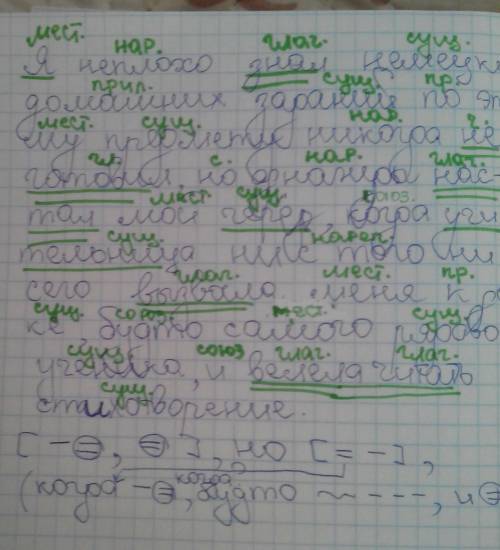 мест. нар. глаг. сущ.
Я неплохо знал немецки
прил. сущ. пр.
домашних заданий по эт
мест. сущ. нар. ч.
му предметук никогда не
гл. с. нар. глаг.
готовил, но однажды нас-
мест сущ. союз.
тал мой черед, когда учи
сущ. нареч.
тельница ни с того ни
глаг. мест. пр.
сего вызвала меня к
сущ. союз. мест. сущ.
ке будто самого рядово
сущ. союз глаг. глаг.
ученика, и велела читать
сущ.
стихотворение.
[ - , ], но [ = - ] ,
когда
(когда - , будто , и